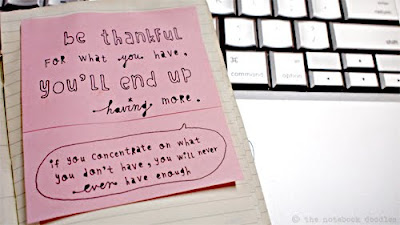 be thankful
FOR what you have,
you'll end up
having more.
if you concentrate on what
you don't have, you will never
ever have enough
command
option
© the notebook doodles